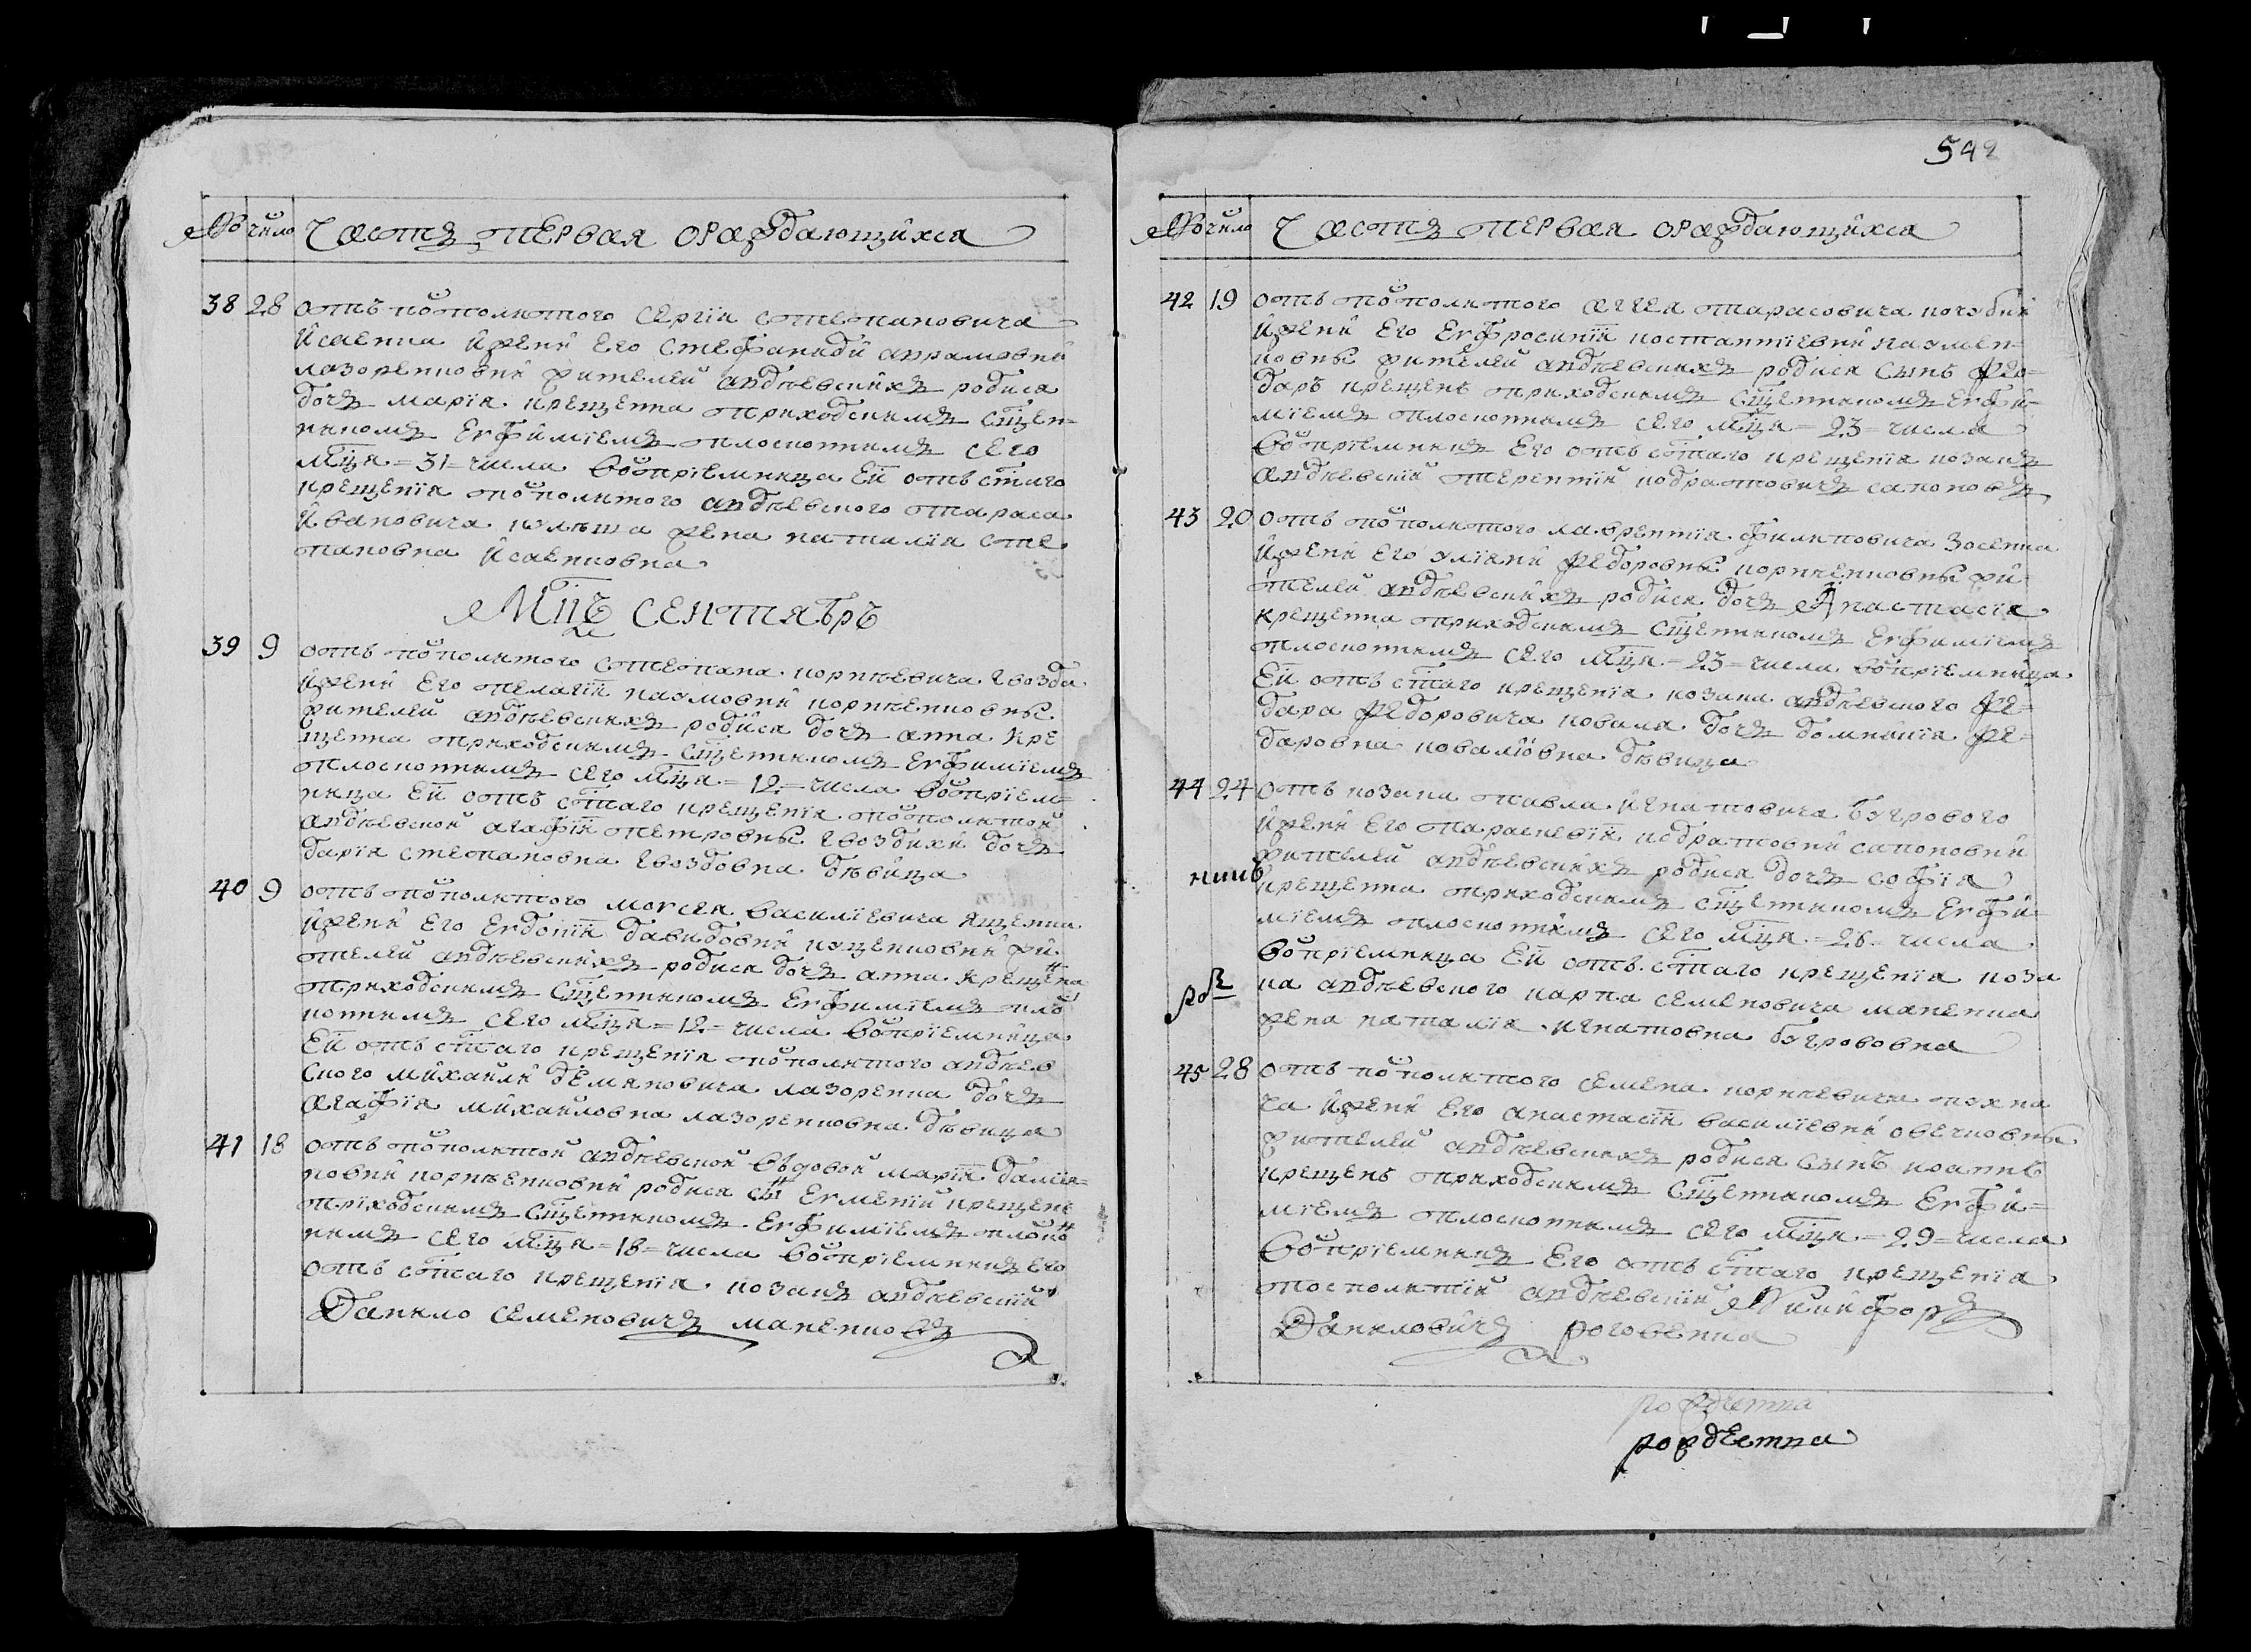 № число Часть первая ораждающихся
38 28 отъ посполитого Сергія Степановича
Исаенка и жени его Стефаниди Аврамовни
Лазоренковни жителей андреевскихъ родися
дочь Марія крещенна приходскимъ священ=
никомъ Евфиміемъ Плосконнимъ сего
мця =31= числа воспріемница ей отъ стаго
крещенія посполитого андреевского Тараса
Ивановича жена Наталія Сте
пановна Исаенковна
Мцъ Сентябръ
39 9 отъ посполитого Степана Корнеевича Гвозда
и жени его Пелагіи Наумовни Корнеенковны
жителей андреевскихъ родися дочь Анна кре
щенна приходскимъ священникомъ Евфиміемъ
Плосконнимъ сего мця =12= числа воспріем=
ница ей отъ стаго крещенія посполитой
андреевской Агафіи Петровны Гвоздихи дочь
Дарія Степановна Гвоздовна девица
40 9 отъ посполитого Моусея Василіевича Ященка
и жени его Евдокіи Давидовни Куценковни жи
телей андреевскихъ родися дочь Анна крещенна
приходскимъ священникомъ Евфиміемъ Плос
коннимъ сего мця =12= числа воспріемница
ей отъ стаго крещенія посполитого андреев
ского Михаили Демяновича Лазоренка дочь
Агафія Михайловна Лазоренковна девица
41 18 отъ посполитой андреевской вдовой Маріи Даміа=
новни Корнеенковни родися снъ Евмений крещенъ
приходскимъ священникомъ Евфиміемъ Плоскон
нимъ сего мця =18= числа воспріемникъ его
отъ стаго крещенія козакъ андреевскій
Данило Семеновичъ Маненковъ
542
№ число Часть первая ораждающихся
42 19 отъ посполитого Аггея Тарасовича
и жени его Евфросиніи Костантіевни Наумен
ковны жителей андреевскихъ родися сынъ Фео=
даръ крещенъ приходскимъ священникомъ Евфи=
міемъ Плосконнимъ сего мця =23= числа
воспріемникъ его отъ стаго крещенія козакъ
андреевскій Терентій Кодратовичъ Сапоновъ
43 20 отъ посполитого Лаврентія Филиповича Зосенка
и жени его Уліяни Федоровны Корнеенковны жи
телей андреевскихъ родися дочь Анастасія
крещенна приходскимъ священникомъ Евфиміемъ
Плосконнимъ сего мця =23= числа воспріемница
ей отъ стаго крещенія козака андреевского Фе=
дара Федоровича Коваля дочь Домникія Фе=
даровна Ковалювна девица
44 24 отъ козака Павла Игнатовича Бугрового
и жени его Параскевіи Кодратовни Сапоновни
жителей андреевскихъ родися дочь Софія
крещенна приходскимъ священникомъ Евфи
міемъ Плосконнимъ сего мця =26= числа
воспріемница ей отъ стаго крещенія коза
ка андреевского Карпа Семеновича Маненка
жена Наталія Игнатовна Бугрововна
45 28 отъ посполитого Семена Корнеевича
и жени его Анастасіи Василіевни Овечковны
жителей андреевскихъ родися сынъ Иоаннъ
крещенъ приходскимъ священникомъ Евфи=
міемъ Плосконнимъ сего мця =29= числа
воспріемникъ его отъ стаго крещенія
посполитій андреевскій Никифоръ
Даниловичъ Роговенка